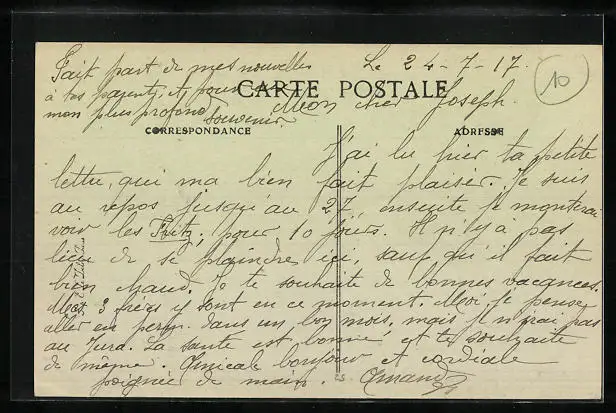 Fait part de mes nouvelles
à tes parents, et pour
mon plus profond
souvenir
Le 24-7-17.
10
CARTE POSTALE
Mon cher Joseph.
CORRESPONDANCE
ADRESSE
J'ai lu hier ta petite
lettre, qui m'a bien fait plaisir. Je suis
au repos jusqu'au 27, ensuite je monterai
voir les Fritz, pour 10 jours. Il n'y a pas
lieu de se plaindre ici, sauf qu'il fait
bien chaud. Je te souhaite de bonnes vacances.
Mes 3 frères y sont en ce moment. Moi, je pense
aller en perm. dans un bon mois, mais je n'irai pas
au Jura. La santé est bonne et te souhaite
de même. Amical bonjour et cordiale
poignée de main.